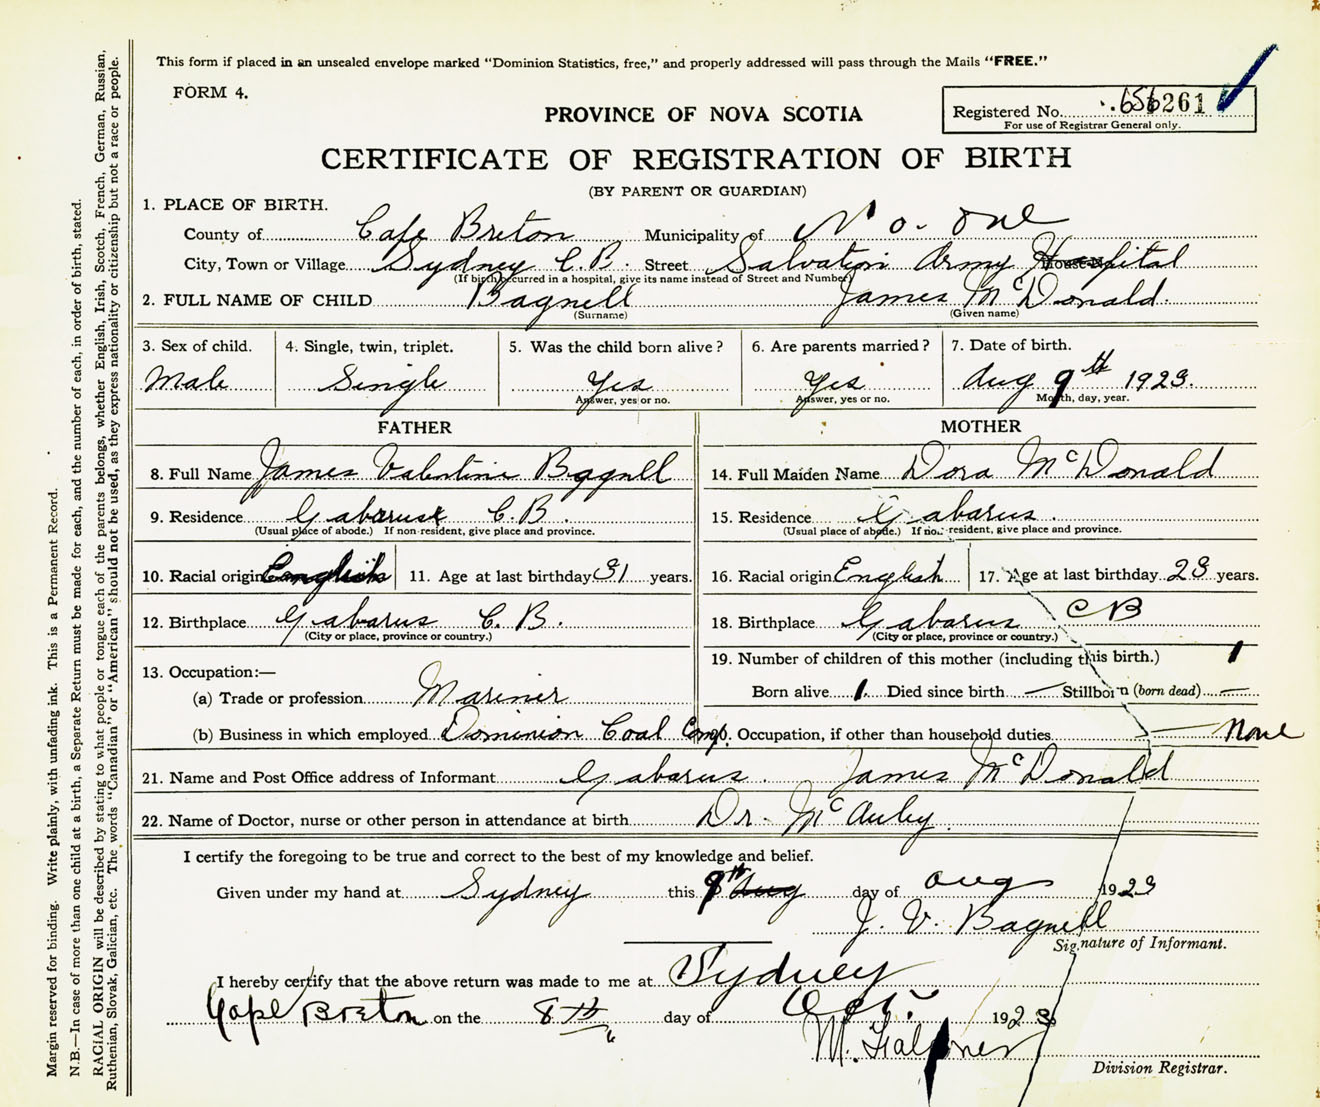 This form if placed in an unsealed envelope marked "Dominion Statistics, free," and properly addressed will pass through the Mails "FREE."
FORM 4.
PROVINCE OF NOVA SCOTIA
Registered No. 656261
For use of Registrar General only.
CERTIFICATE OF REGISTRATION OF BIRTH
(BY PARENT OR GUARDIAN)
1. PLACE OF BIRTH.
County of Cape Breton Municipality of No. one
City, Town or Village Sydney C.B. Street Salvation Army Hospital
(If birth occurred in a hospital, give its name instead of Street and Number)
2. FULL NAME OF CHILD Bagnell James McDonald.
(Surname) (Given name)
3. Sex of child. 4. Single, twin, triplet. 5. Was the child born alive? 6. Are parents married? 7. Date of birth.
Male Single Yes Yes Aug 9th 1923.
Answer, yes or no. Answer, yes or no. Month, day, year.
FATHER MOTHER
8. Full Name James Valentine Bagnell 14. Full Maiden Name Dora McDonald
9. Residence Gabarus C.B. 15. Residence Gabarus.
(Usual place of abode.) If non-resident, give place and province. (Usual place of abode.) If non-resident, give place and province.
10. Racial origin English 11. Age at last birthday 31 years. 16. Racial origin English 17. Age at last birthday 23 years.
12. Birthplace Gabarus C.B. 18. Birthplace Gabarus CB
(City or place, province or country.) (City or place, province or country.)
13. Occupation:— 19. Number of children of this mother (including this birth.) 1
(a) Trade or profession Mariner Born alive 1. Died since birth — Stillborn (born dead) —
(b) Business in which employed Dominion Coal Comp. 20. Occupation, if other than household duties — None
21. Name and Post Office address of Informant Gabarus. James McDonald
22. Name of Doctor, nurse or other person in attendance at birth Dr. McAuley.
I certify the foregoing to be true and correct to the best of my knowledge and belief.
Given under my hand at Sydney this 9th Aug day of Aug 1923
J. V. Bagnell
Signature of Informant.
I hereby certify that the above return was made to me at Sydney
Cape Breton on the 8th day of Oct. 1923
M. Falconer
Division Registrar.
Margin reserved for binding. Write plainly, with unfading ink. This is a Permanent Record.
N.B.—In case of more than one child at a birth, a Separate Return must be made for each, and the number of each, in order of birth, stated.
RACIAL ORIGIN will be described by stating to what people or tongue each of the parents belongs, whether English, Irish, Scotch, French, German, Russian,
Ruthenian, Slovak, Galician, etc. The words "Canadian" or "American" should not be used, as they express nationality or citizenship but not a race or people.